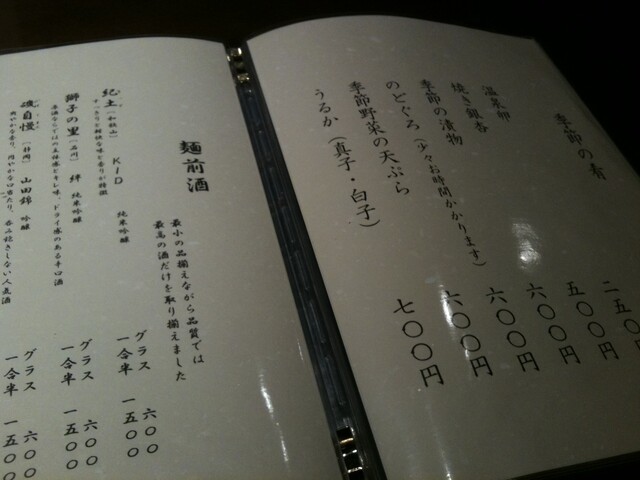 季節の肴
温泉卵 二五〇
焼き銀杏 五〇〇円
季節の漬物 六〇〇円
のどぐろ(少々お時間かかります) 六〇〇円
季節野菜の天ぷら 六〇〇円
うるか(真子・白子) 七〇〇円
麺前酒
最小の品揃えながら品質では
最高の酒だけを取り揃えました
紀土(和歌山) KID 純米吟醸 グラス 六〇〇
すっきりと軽快な味と香りが特徴 一合半 一五〇〇
獅子の里(石川) 絆 純米吟醸 グラス 六〇〇
一合半 一五〇〇
磯自慢(静岡) 山田錦 吟醸 グラス 六〇〇
一合半 一五〇〇